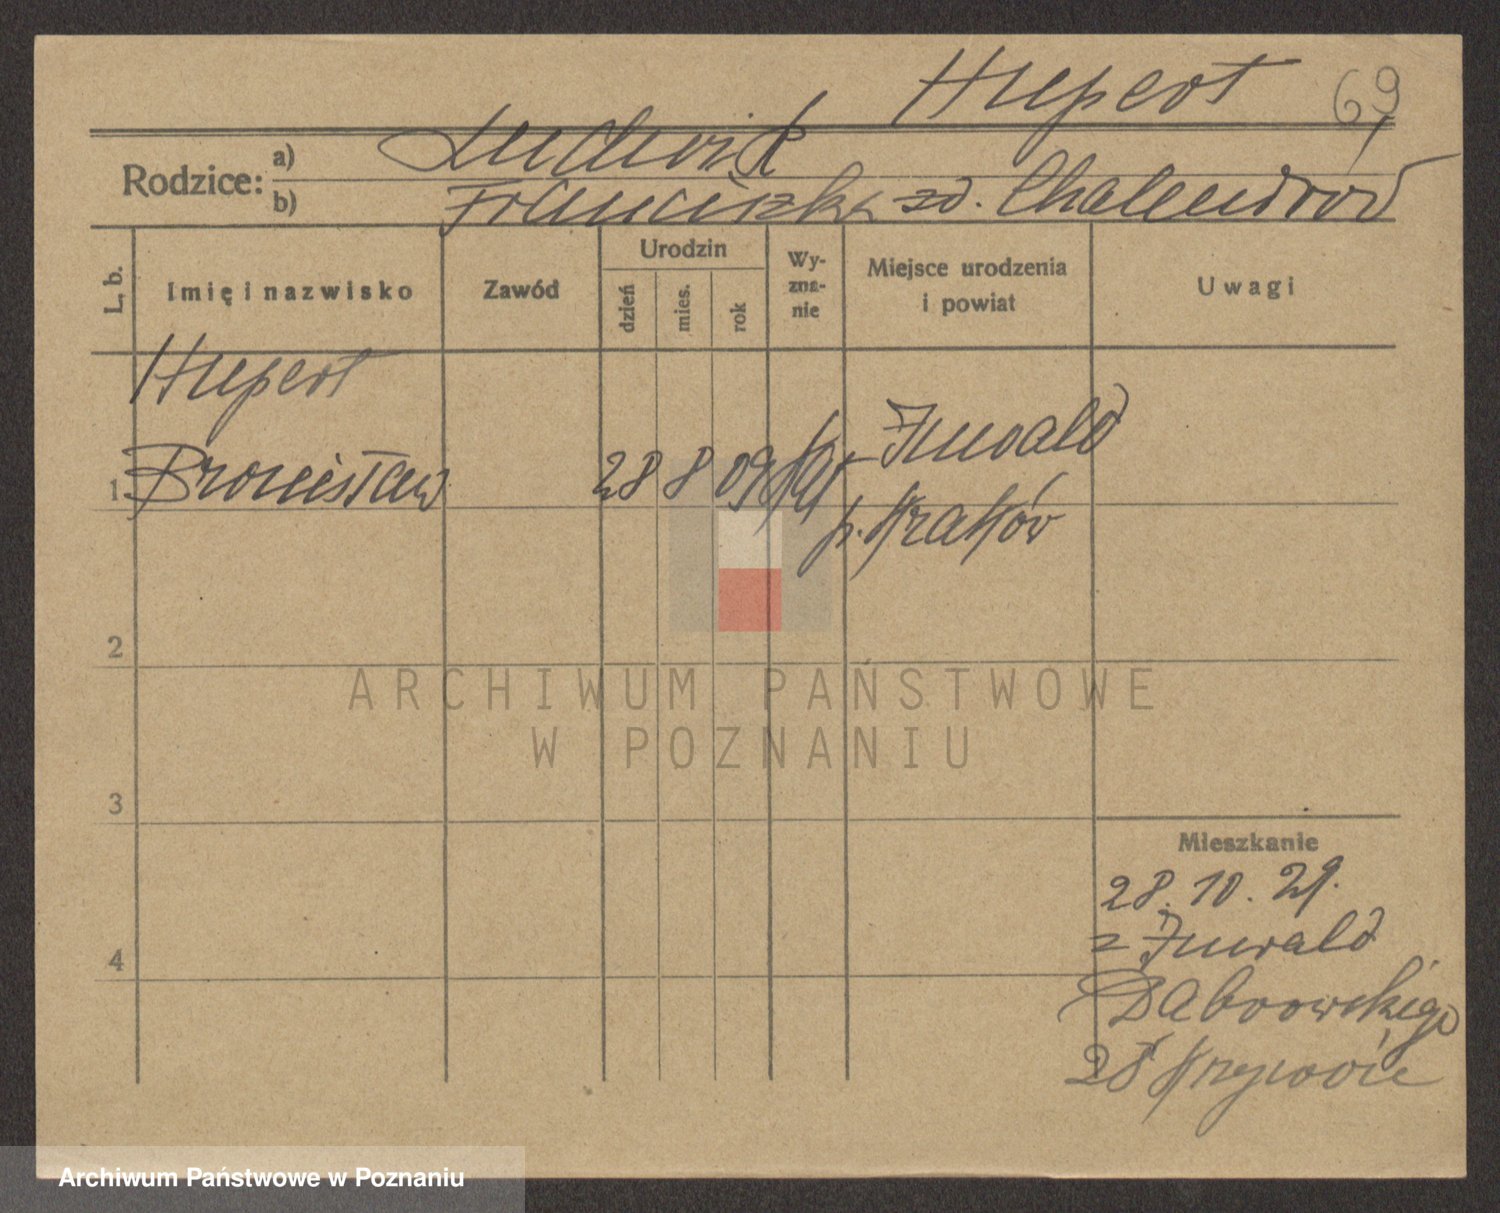 Hupert 69
Rodzice:
a) Ludwik
b) Franciszka zd.
L. b.
Imię i nazwisko
Zawód
Urodzin
dzień
mies.
rok
Wy-
zna-
nie
Miejsce urodzenia
i powiat
Uwagi
Hupert
1 Bronisław 28 8 09 Inwald
p. Kraków
2
3
4
Mieszkanie
28. 10. 29.
z Inwald
Dąbrowskiego
28
ARCHIWUM PAŃSTWOWE
W POZNANIU
Archiwum Państwowe w Poznaniu